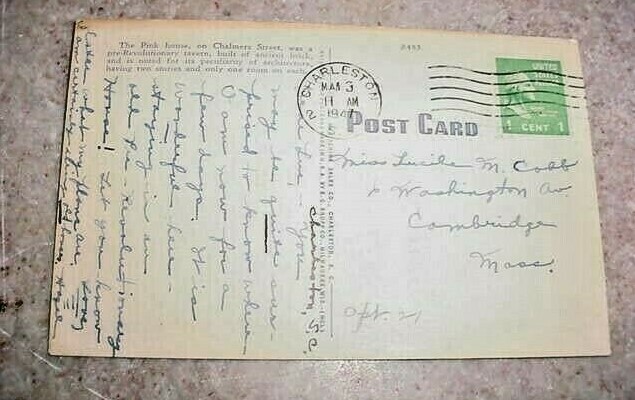 The Pink house, on Chalmers Street, was a
pre-Revolutionary tavern, built of ancient brick,
and is noted for its peculiarity of architecture,
having two stories and only one room on each
CHARLESTON
MAR 3
11 AM
1947
UNITED
STATES
1 CENT 1
POST CARD
Miss Lucile M. Cobb
Washington Av.
Cambridge
Mass.
Apt. 21
Charleston, S.C.
You
may be quite sur-
prised to know where
I am now for a
few days. It is
Wonderful here.
Staying in an
old Pre-Revolutionary
House! Let you know
later what my plans are. Love,